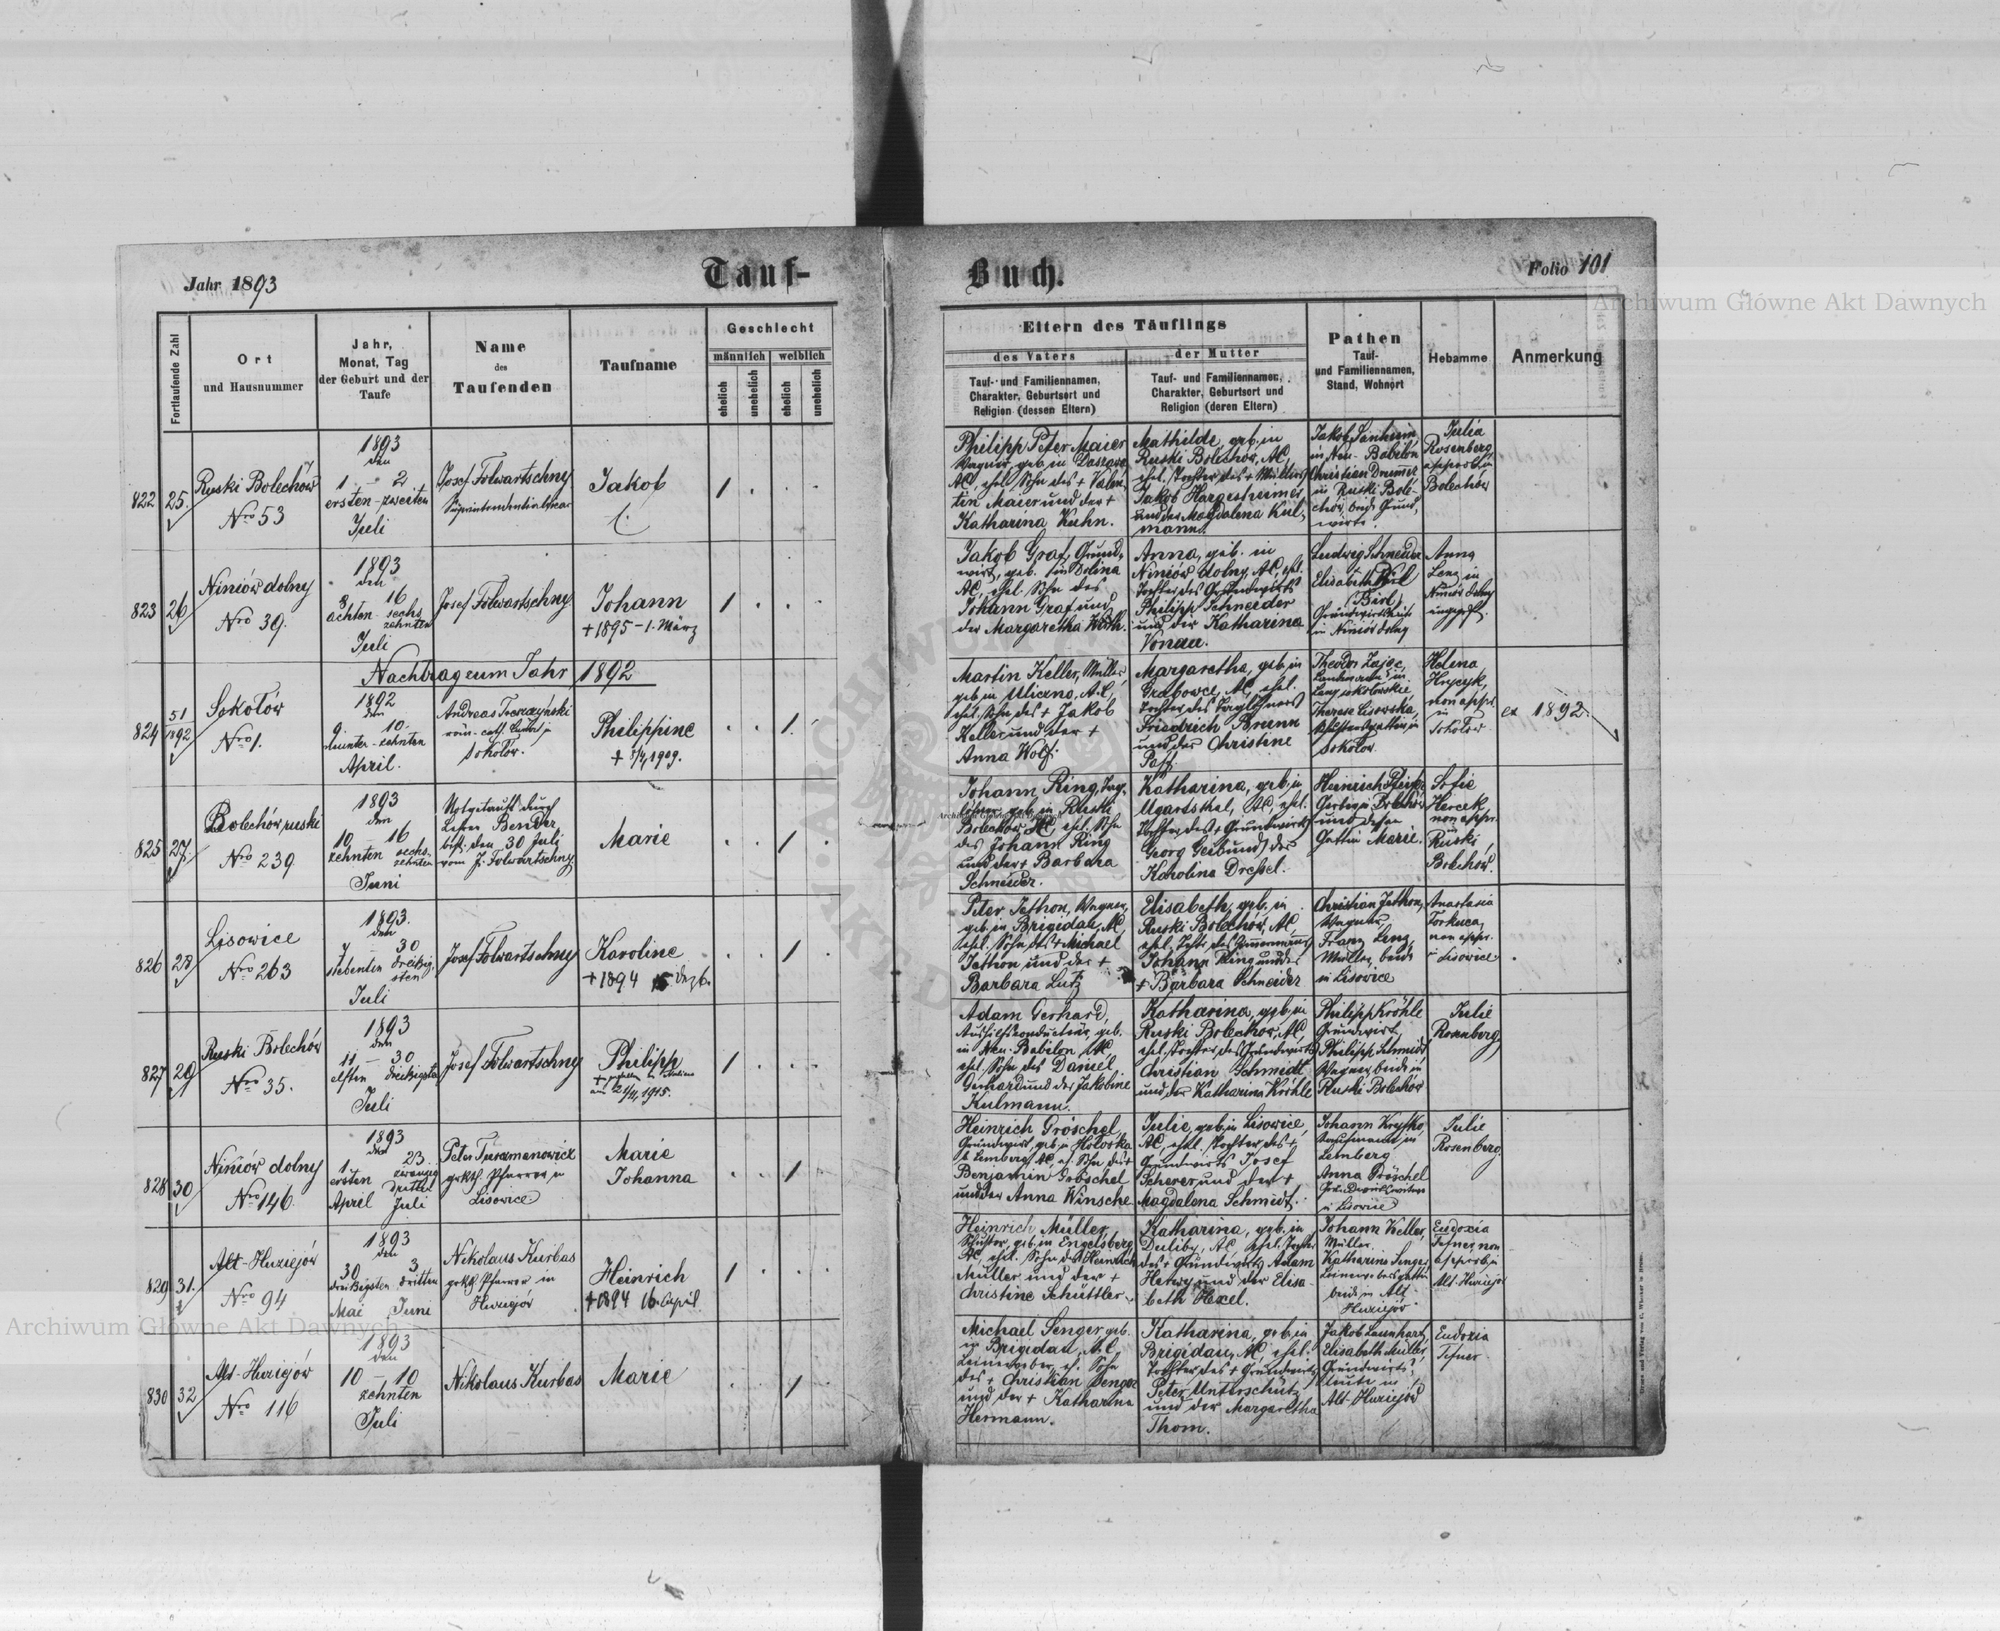 Jahr 1893
Tauf-
Buch.
Folio 101
Archiwum Główne Akt Dawnych
Fortlaufende Zahl
Ort
und Hausnummer
Jahr,
Monat, Tag
der Geburt und der
Taufe
Name
des
Taufenden
Taufname
Geschlecht
männlich
weiblich
ehelich
unehelich
ehelich
unehelich
Eltern des Täuflings
des Vaters
der Mutter
Tauf- und Familiennamen,
Charakter, Geburtsort und
Religion (dessen Eltern)
Tauf- und Familiennamen,
Charakter, Geburtsort und
Religion (deren Eltern)
Pathen
Tauf-
und Familiennamen,
Stand, Wohnort
Hebamme
Anmerkung
822
25.
Ruski Bolechów
Nro 53
1893
den
1 - 2
ersten - zweiten
Juli
Josef Folwartschny
Jakob
1
Philipp Peter Maier
Wagner, geb. in
AC, ehel. Sohn des + Valen-
tin Maier und der +
Katharina Kuhn.
Mathilde, geb. in
Ruski Bolechów, AC,
ehel. Tochter des +
Jakob Hargesheimer
und der Magdalena Kul-
mann.
Jakob
in Neu-Babilon
Christian
in Ruski Bole-
chów, beide Grund-
wirte.
Julia
Rosenberg,
approb. in
Bolechów
823
26
Niniów dolny
Nro 39.
1893
den
8 16
achten - sechs-
zehnten
Juli
Josef Folwartschny
Johann
+ 1895 - 1. März
1
Jakob Graf, Grund-
wirt, geb. in Dolina
AC, ehel. Sohn des
Johann Graf und
der Margaretha
Anna, geb. in
Niniów dolny, AC, ehel.
Tochter des Grundwirts
Philipp Schneider
und der Katharina
Vonau.
Ludwig Schneider
Elisabeth
(Birl)
in Niniów dolny
Anna
Lenz in
Niniów dolny
ungeprft.
Nachtrag zum Jahr 1892
824
51
1892
Sokołów
Nro 1.
1892
den
9. 10.
neunten - zehnten
April.
Andreas
röm. cath.
Sokołów.
Philippine
1.
Martin Keller, Müller,
geb. in Uliczno, A.C.,
ehel. Sohn des + Jakob
Keller und der +
Anna Wolf.
Margaretha, geb. in
Grabowce, AC, ehel.
Tochter des Taglöhners
Friedrich Brunn
und der Christine
Theodor Zając,
Therese Lisowska,
Sokołów.
Helena
non appr.
in
Sokołów
ex 1892.
825
27.
Bolechów ruski
Nro 239
1893
den
10 16
zehnten sechs-
zehnten
Juni
Notgetauft durch
Lehrer Bender
best. den 30 Juli
vom J. Folwartschny
Marie
1
Johann Ring, Tag-
löhner, geb. in Ruski
Bolechów AC, ehel. Sohn
des Johann Ring
und der + Barbara
Schneider.
Katharina, geb. in
Ugartsthal, AC, ehel.
Tochter des + Grundwirts
Georg Geibund der
Karolina Dressel.
Heinrich
und dessen
Gattin Marie.
Sofie
non appr.
in
Ruski
Bolechów.
826
28
Lisowice
Nro 263
1893.
den
7 - 30
siebenten dreißig-
sten
Juli
Josef Folwartschny
Karoline
+ 1894
1
Peter Jethon, Wagner,
geb. in Brigidau, AC,
ehel. Sohn des + Michael
Jethon und der +
Barbara Lutz
Elisabeth, geb. in
Ruski Bolechów, AC,
ehel. Tocht. des Zimmermanns
Johann Ring und der
+ Barbara Schneider
Christian Jethon,
Wagner,
Franz Lenz,
Müller, beide
in Lisowice
Anastasia
non appr.
in Lisowice.
827
29
Ruski Bolechów
Nro 35.
1893
den
11 - 30
elften dreißigsten
Juli
Josef Folwartschny
Philipp
1
Adam Gerhard,
Aushilfskonducteur, geb.
in Neu-Babilon, AC
ehel. Sohn des Daniel
Gerhard und der Jakobine
Kulmann.
Katharina, geb. in
Ruski Bolechów, AC,
ehel. Tochter des Grundwirts
Christian Schmidt
und der Katharina Kröhle
Philipp Kröhle
Grundwirt,
Philipp Schmidt
Wagner, beide in
Ruski Bolechów
Julie
Rosenberg
828
30
Niniów dolny
Nro 146.
1893
den
1 23.
ersten zwanzig
dritten
April Juli
Peter
grkth. Pfarrer in
Lisowice
Marie
Johanna
1
Heinrich Gröschel,
Grundwirt, geb. in
b. Lemberg, AC, eh. Sohn des +
Benjamin Gröschel
und der Anna Winsche
Julie, geb. in Lisowice,
AC, ehel. Tochter des +
Grundwirts Josef
Scherer und der +
Magdalena Schmidt.
Johann
Kaufmann in
Lemberg
Anna Gröschel
in Lisowice
Julie
Rosenberg
829
31.
Alt-Huziejów
Nro 94
1893
den
30 3
dreißigsten dritten
Mai Juni
Nikolaus Kurbas
grkth. Pfarrer in
Huziejów
Heinrich
+ 1894 16. April.
1
Heinrich Müller,
Schuster, geb. in Engelsberg
AC, ehel. Sohn des Heinrich
Müller und der +
Christine Schüttler.
Katharina, geb. in
Duliby, AC, ehel. Tochter
des + Grundwirts Adam
Herwy und der Elisa-
beth Hexel.
Johann Keller,
Müller.
Katharine Senger
Leinewebersgattin
beide in Alt-
Huziejów
Eudoxia
Tefner, non
approb. in
Alt Huziejów
830
32
Alt-Huziejów
Nro 116
1893
den
10 - 10
zehnten
Juli
Nikolaus Kurbas
Marie
1
Michael Senger, geb.
in Brigidau, A.C,
Leineweber, eh. Sohn
des + Christian Senger
und der + Katharina
Hermann.
Katharina, geb. in
Brigidau, AC, ehel.
Tochter des + Grundwirts
Peter Unterschütz
und der Margaretha
Thom.
Jakob Launhart,
Elisabeth Müller,
Grundwirts-
leute in
Alt-Huziejów
Eudoxia
Tefner
Archiwum Główne Akt Dawnych